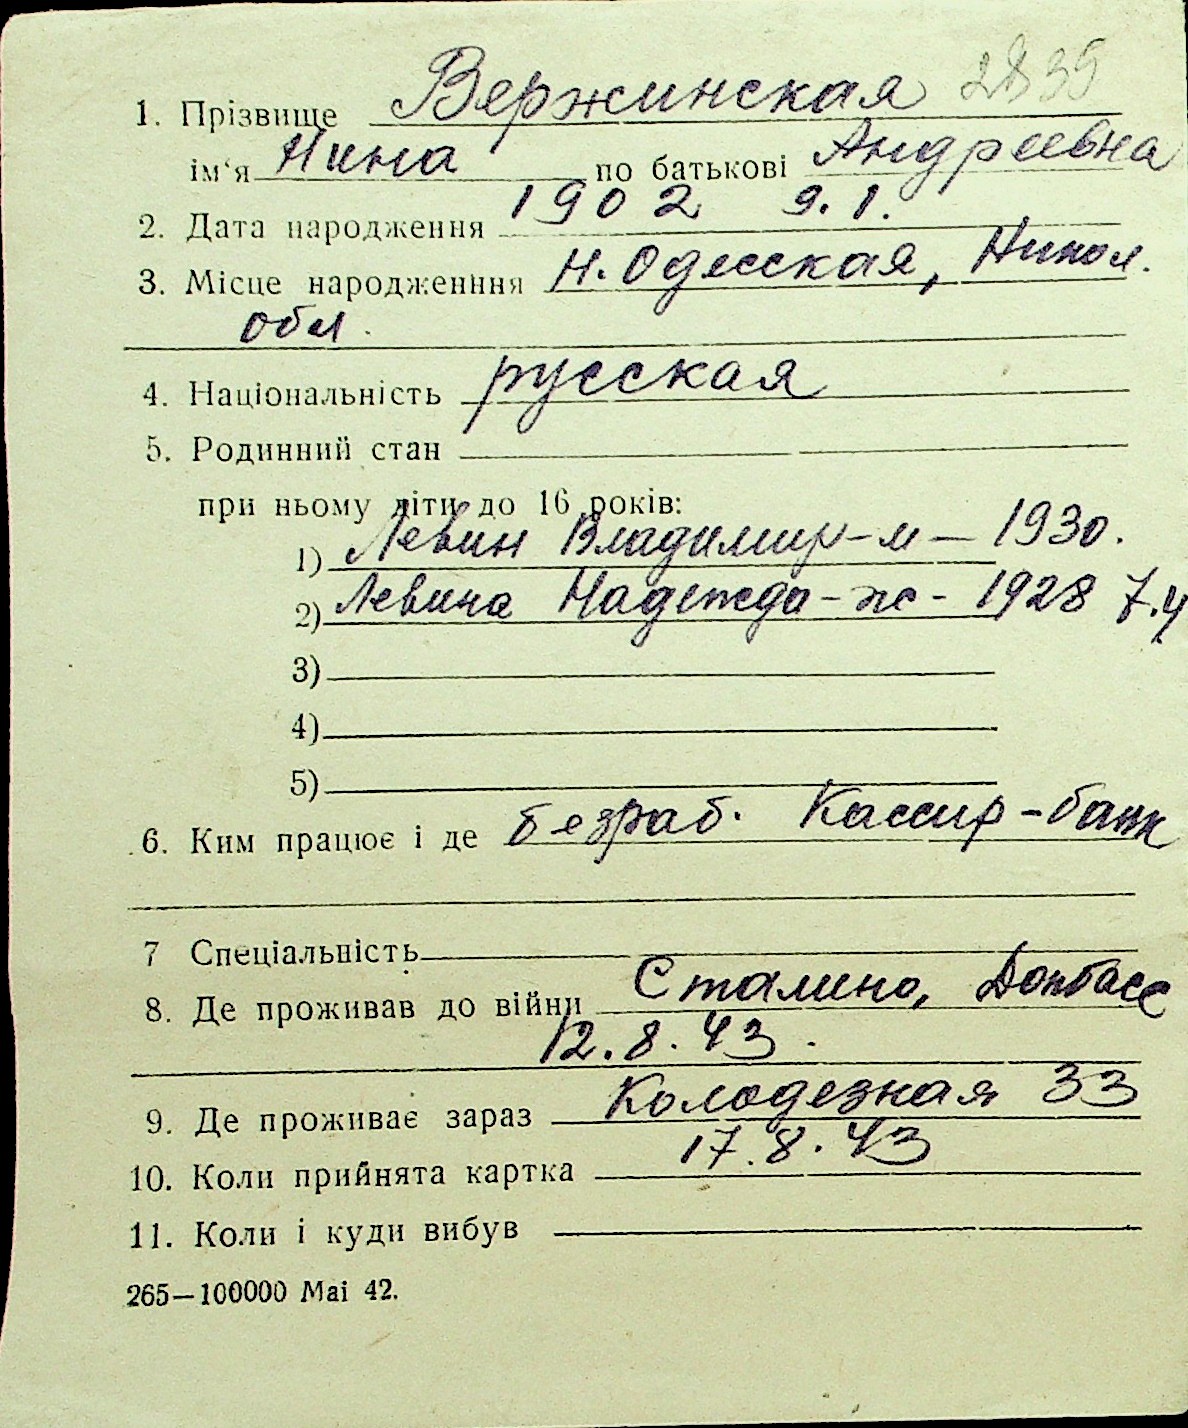 1. Прізвище Вержинская 2835
ім‘я Нина по батькові Андреевна
2. Дата народження 1902 9.1.
3. Місце народженння Н. Одесская, Никол.
обл.
4. Національність русская
5. Родинний стан
при ньому діти до 16 років:
1) Левин Владимир - м - 1930.
2) Левина Надежда - ж - 1928 7.4
3)
4)
5)
6. Ким працює і де безраб. Кассир - банк
7 Спеціальність
8. Де проживав до війни Сталино, Донбасс
12.8.43.
9. Де проживає зараз Колодезная 33
10. Коли прийнята картка 17.8.43
11. Коли і куди вибув
265—100000 Mai 42.